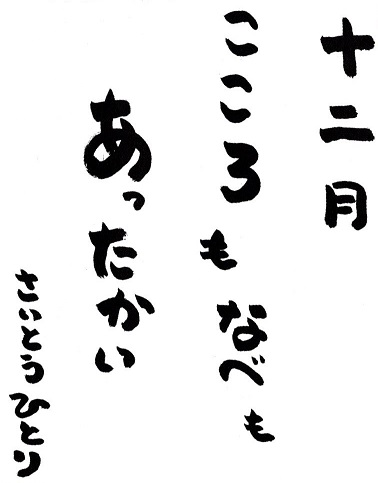 十二月
こころもなべも
あったかい
さいとうひとり